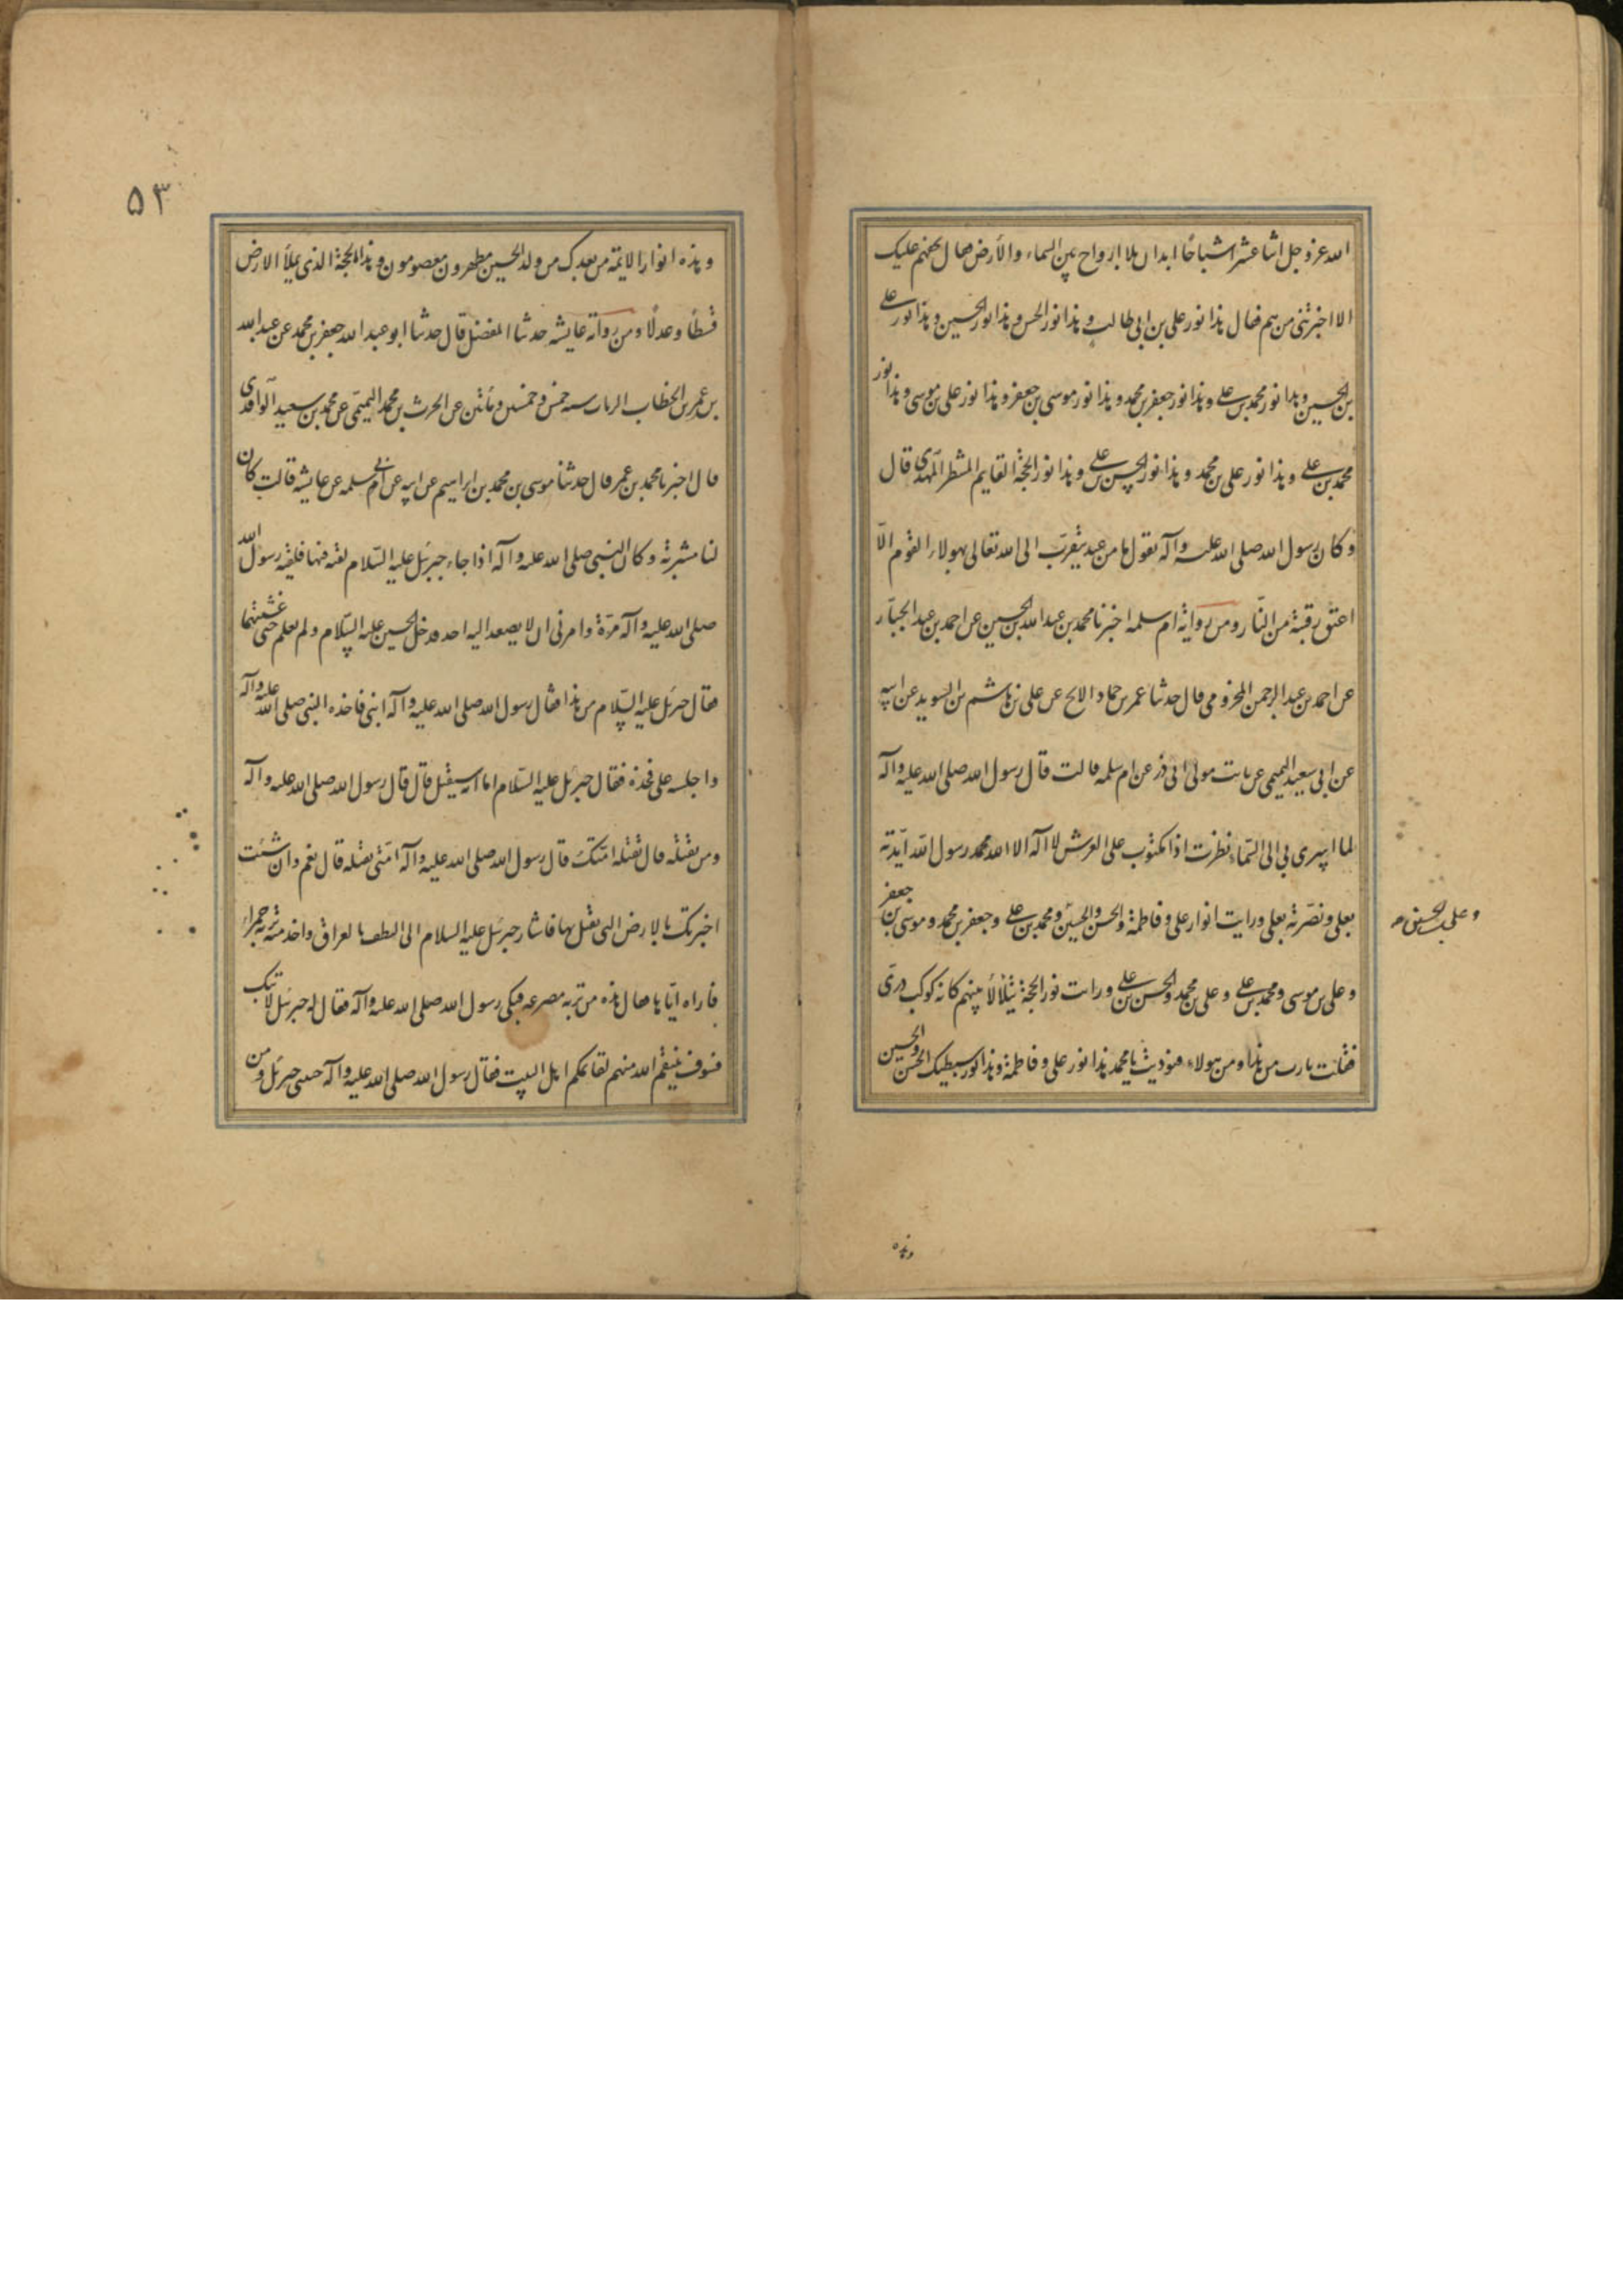 الله عز و جل اثنا عشر اشباحًا ابدان بلا ارواح بين السماء والأرض فقال بحقهم عليك
الا اخبرتنى من هم فقال هذا نور على بن ابى طالب و هذا نور الحسن و هذا نور الحسين و هذا نور على
بن الحسين و هذا نور محمد بن على و هذا نور جعفر بن محمد و هذا نور موسى بن جعفر و هذا نور على بن موسى و هذا نور
محمد بن على و هذا نور على بن محمد و هذا نور الحسن بن على و هذا نور الحجة القايم المنتظر المهدى قال
و كان رسول الله صلى الله عليه وآله يقول ما من عبد يتقرب الى الله تعالى بهولاء القوم الّا
اعتق رقبته من النّار ومن رواية ام سلمه اخبرنا محمد بن عبد الله بن الحسين عن احمد بن عبد الجبّار
عن احمد بن عبد الرحمن المخزومى قال حدثنا عمر بن حماد الابح عن على بن هاشم بن السويد عن ابيه
عن ابى سعيد التميمى عن ثابت مولى ابى ذر عن ام سلمه قالت قال رسول الله صلى الله عليه وآله
لما اسرى بى الى السّماء نظرت اذا مكتوب على العرش لا اله الا الله محمد رسول الله ايّدته
بعلى و نصّرته بعلى ورايت انوار على و فاطمة والحسن والحسين و محمد بن على و جعفر بن محمد و موسى بن جعفر
و على بن الحسين صح
و على بن موسى و محمد بن على و على بن محمد والحسن بن على و رايت نور الحجة يتلألأ بينهم كانه كوكب درّى
فقلت يا رب من هذا و من هولاء فنوديت يا محمد هذا نور على و فاطمة و هذا نور سبطيك الحسن والحسين
وهذه
٥٣
و هذه انوار الايمة من بعدك من ولد الحسين مطهرون معصومون و هذا الحجة الذى يملأ الارض
قسطًا و عدلًا و من رواته عايشه حدثنا المفضل قال حدثنا ابو عبد الله جعفر بن محمد عن عبد الله
بن عمر بن الخطاب الزيات سنه خمس و خمسين و مائتين عن الحرث بن محمد التميمى عن محمد بن سعيد الواقدى
قال اخبرنا محمد بن عمر قال حدثنا موسى بن محمد بن ابراهيم عن ابيه عن ابى سلمه عن عايشه قالت كان
لنا مشربة و كان النبى صلى الله عليه وآله اذا جاء جبرئيل عليه السّلام لقيه فيها فلقيه رسول الله
صلى الله عليه وآله مرّة و امرنى ان لا يصعد اليه احد فدخل الحسين عليه السّلام ولم نعلم حتى غشيتهما
فقال جبرئيل عليه السّلام من هذا فقال رسول الله صلى الله عليه وآله ابنى فاخذه النبى صلى الله عليه وآله
و اجلسه على فخذه فقال جبرئيل عليه السّلام اما انه سيقتل قال قال رسول الله صلى الله عليه وآله
و من يقتله قال تقتله امّتك قال رسول الله صلى الله عليه وآله امّتى تقتله قال نعم و ان شئت
اخبرتك بالارض التى يقتل بها فاشار جبرئيل عليه السلام الى الطف بالعراق واخذ منه تربة حمراء
فأراه ايّاها فقال هذه من تربه مصرعه فبكى رسول الله صلى الله عليه وآله فقال له جبرئيل لا تبك
فسوف ينتقم الله منهم بقائمكم اهل البيت فقال رسول الله صلى الله عليه وآله حبيبى جبرئيل و من